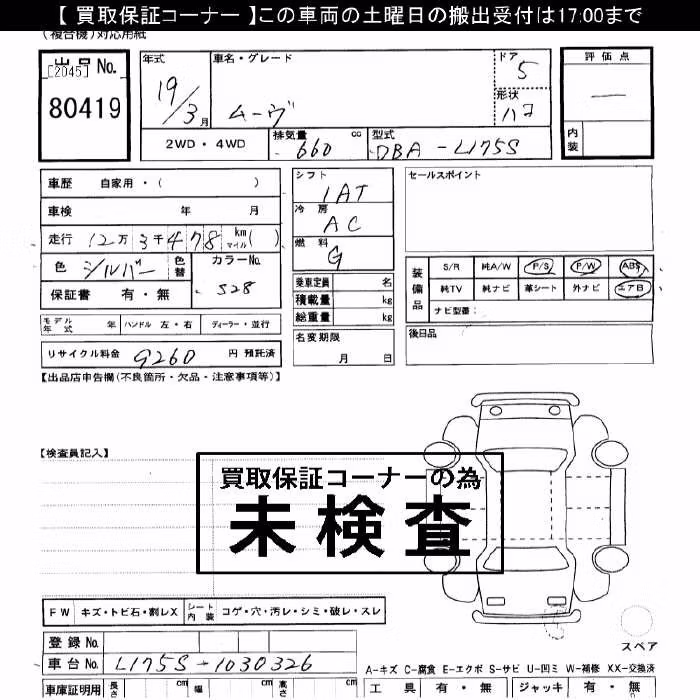 【 買取保証コーナー 】この車両の土曜日の搬出受付は17:00まで
(複合機)対応用紙
出品 No.
[2045]
80419
年式
19/3月
車名・グレード
ムーヴ
ドア
5
形状
ハコ
評価点
—
内装
2WD・4WD
排気量 660 cc
型式 DBA-L175S
車歴 自家用・( )
車検 年 月
走行 12万3千478 km マイル ( )
色 シルバー 色替
カラーNo. S28
保証書 有・無
シフト IAT
冷房 AC
燃料 G
乗車定員 名
積載量 kg
総重量 kg
名変期限 月 日
セールスポイント
装備品
S/R 純A/W P/S P/W ABS
純TV 純ナビ 革シート 外ナビ エアB
ナビ型番:
後日品
モデル年式 年 ハンドル 左・右 ディーラー・並行
リサイクル料金 9260 円 預託済
【出品店申告欄(不良箇所・欠品・注意事項等)】
【検査員記入】
買取保証コーナーの為
未検査
FW キズ・トビ石・割レX シート内装 コゲ・穴・汚レ・シミ・破レ・スレ
スペア
登録 No.
車台 No. L175S-1030326
A-キズ C-腐食 E-エクボ S-サビ U-凹ミ W-補修 XX-交換済
車庫証明用 長さ cm 幅 cm 高さ cm
工具 有・無 ジャッキ 有・無